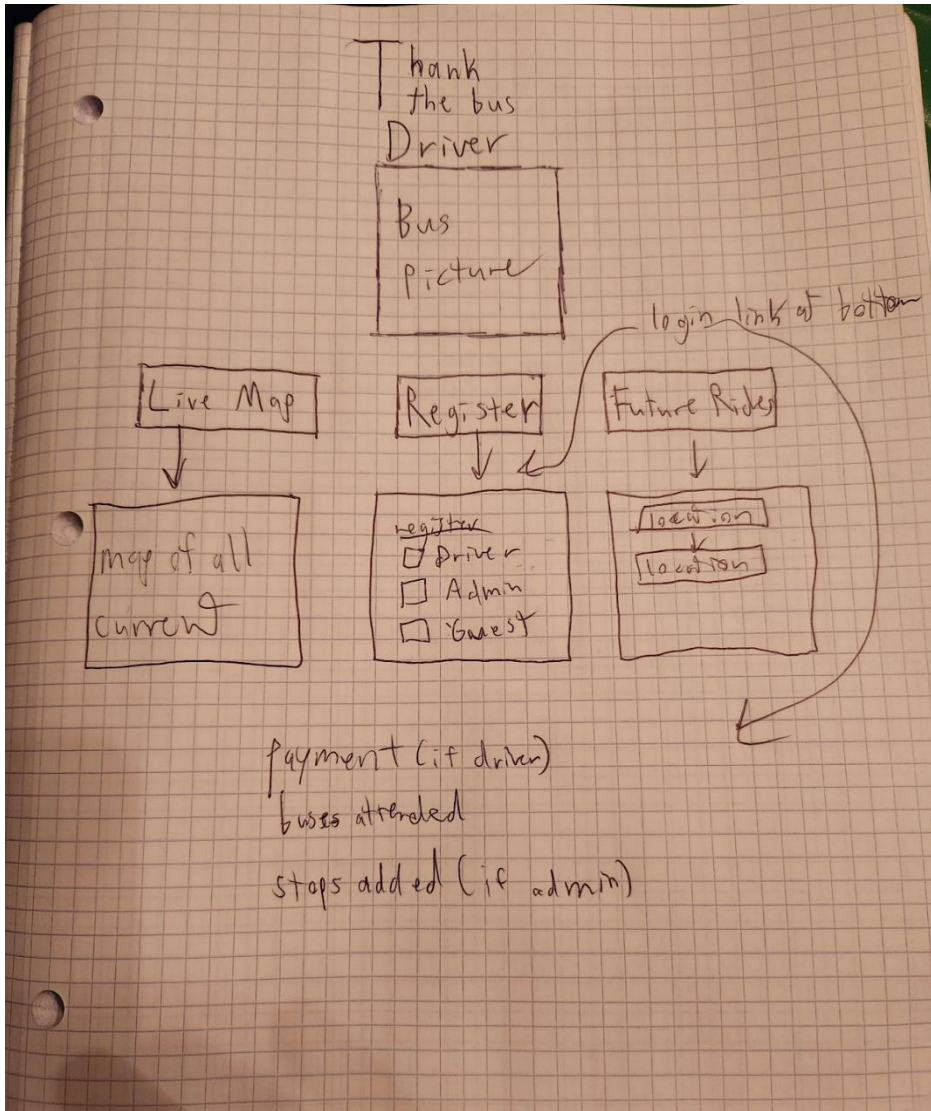 Thank
the bus
Driver
Bus
picture
login link at bottom
Live Map
Register
Future Rides
map of all
current
register
Driver
Admin
Guest
location
location
Payment (if driver)
buses attended
stops added (if admin)